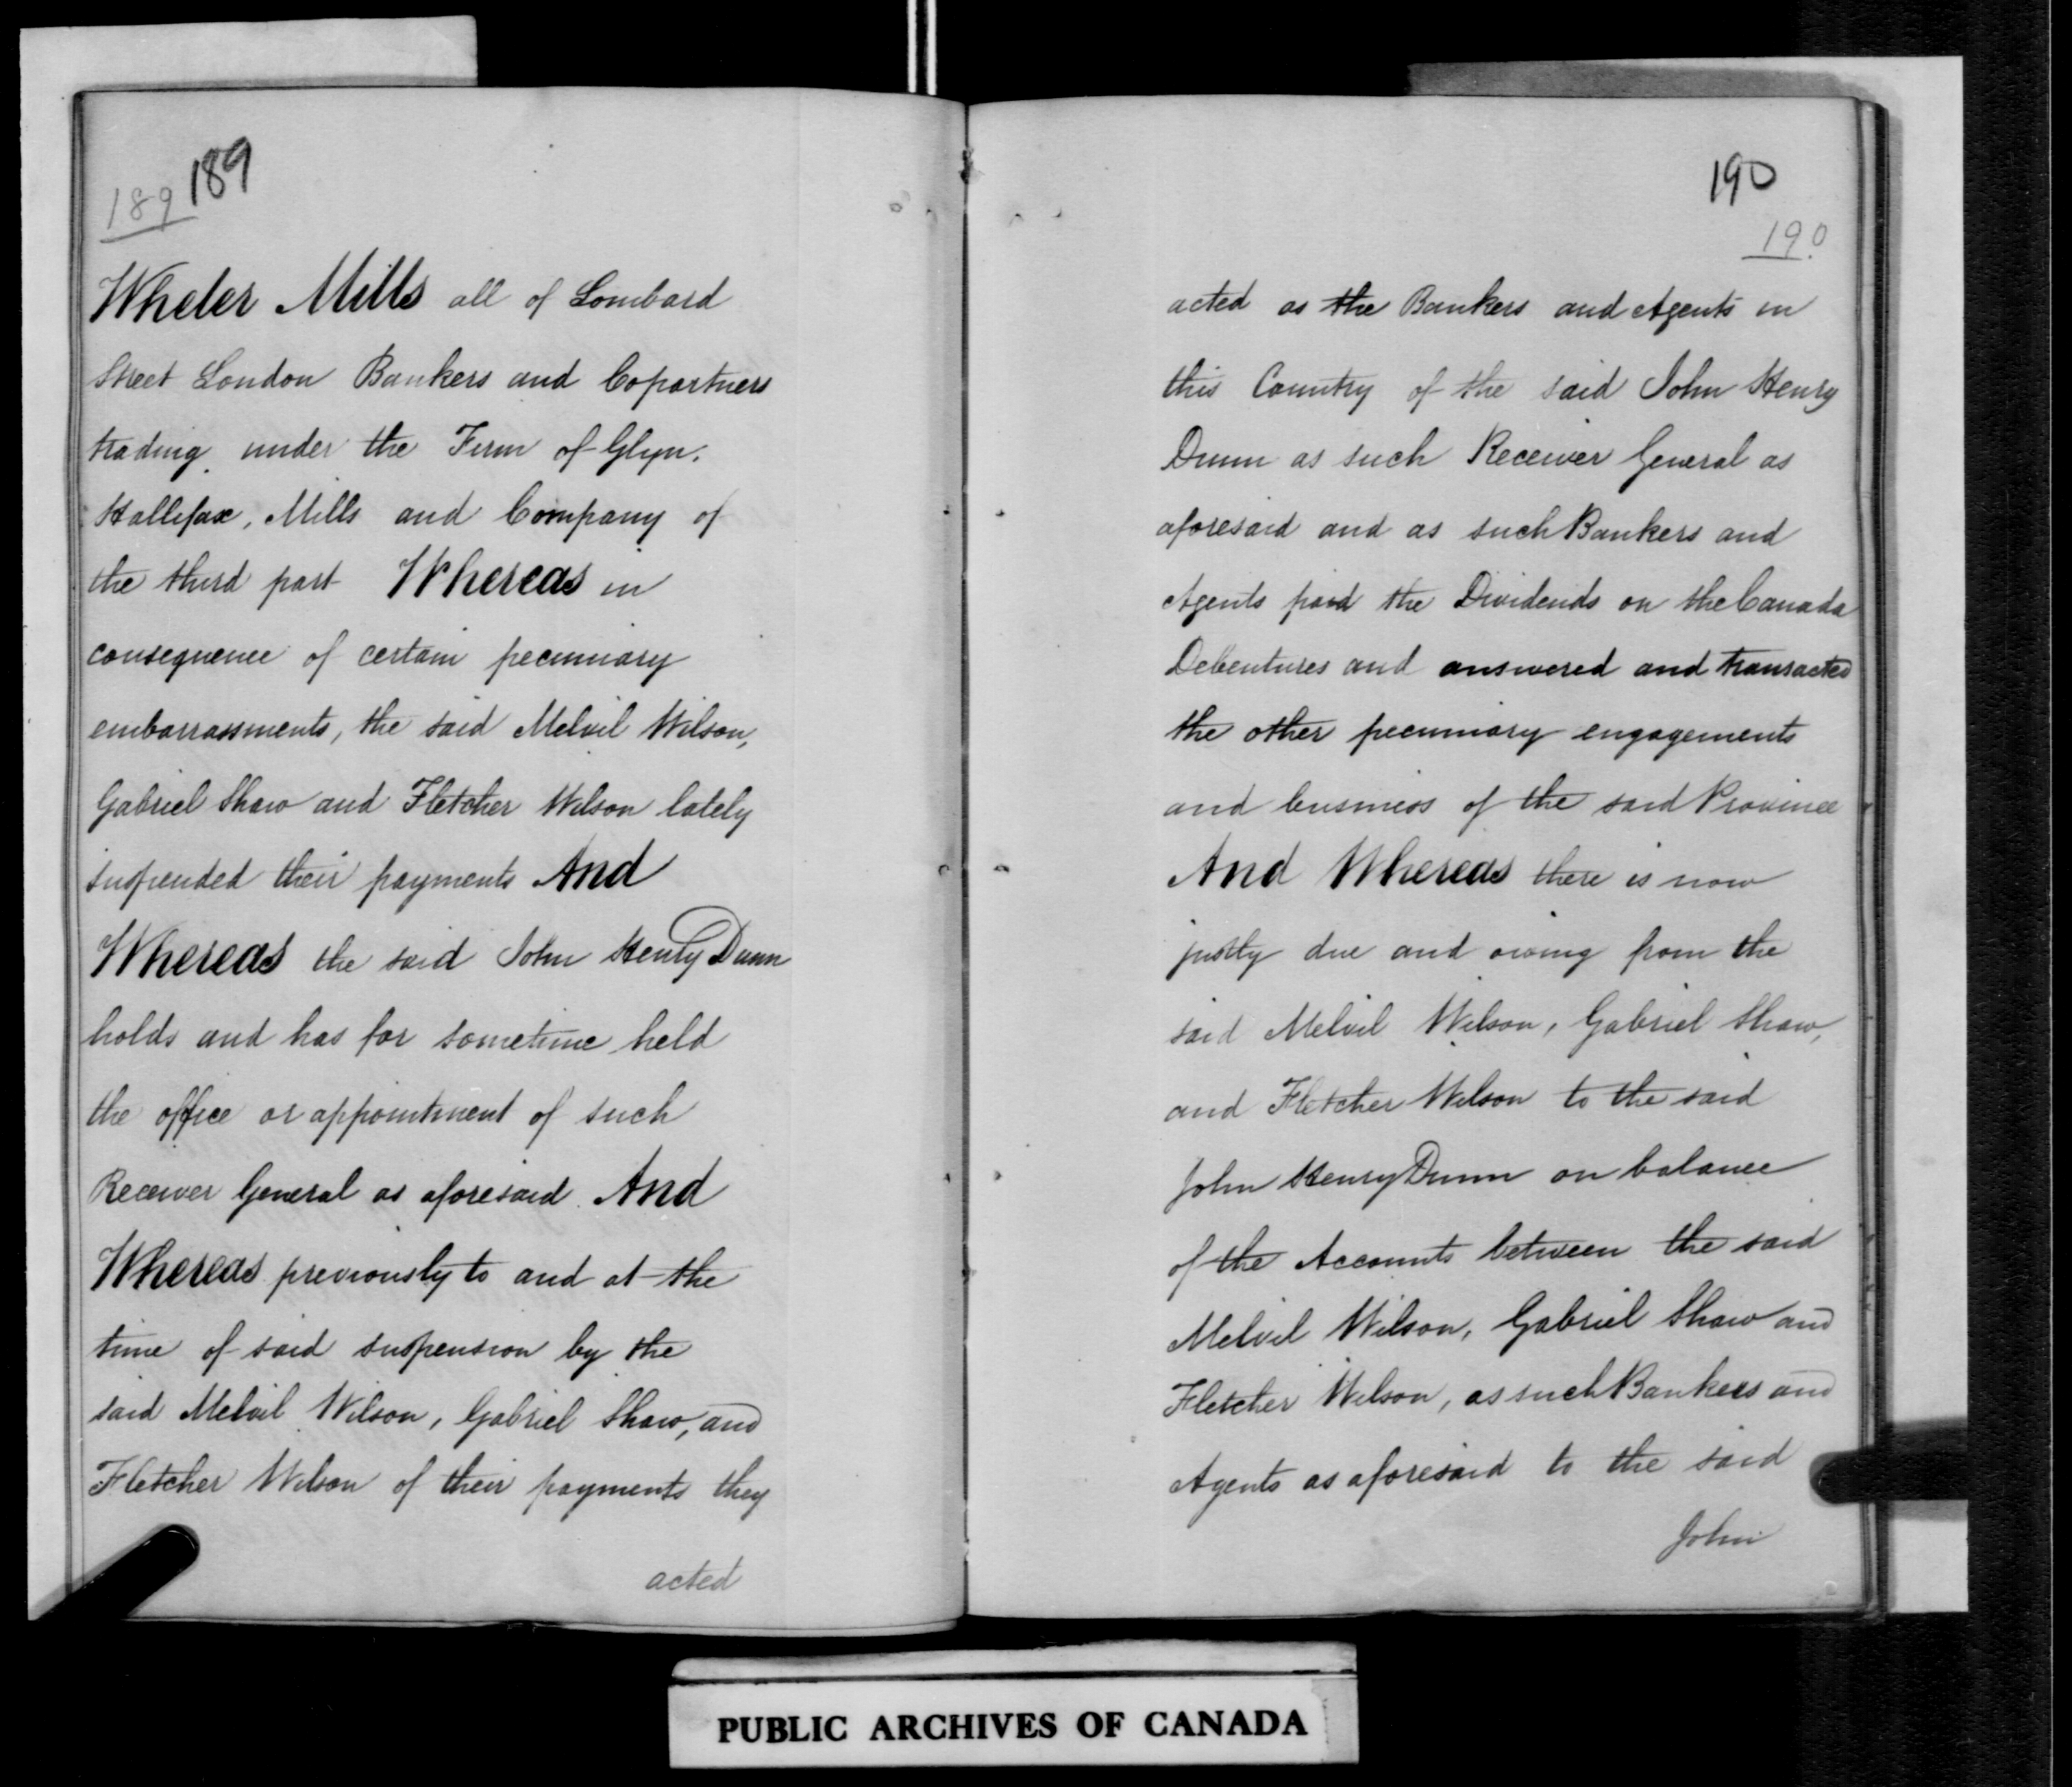 189 189
Wheler Mills all of Lombard
Street London Bankers and Copartners
trading under the Firm of Glyn.
Hallifax, Mills and Company of
the third part Whereas in
consequence of certain pecuniary
embarrassments, the said Melvil Wilson,
Gabriel Shaw and Fletcher Wilson lately
suspended their payments And
Whereas the said John Henry Dunn
holds and has for sometime held
the office or appointment of such
Receiver General as aforesaid. And
Whereas previously to and at the
time of said suspension by the
said Melvil Wilson, Gabriel Shaw, and
Fletcher Wilson of their payments they
acted
190
190.
acted as the Bankers and Agents in
this Country of the said John Henry
Dunn as such Receiver General as
aforesaid and as such Bankers and
Agents paid the Dividends on the Canada
Debentures and answered and transacted
the other pecuniary engagements
and business of the said Province
And Whereas there is now
justly due and owing from the
said Melvil Wilson, Gabriel Shaw,
and Fletcher Wilson to the said
John Henry Dunn on balance
of the Accounts between the said
Melvil Wilson, Gabriel Shaw and
Fletcher Wilson, as such Bankers and
Agents as aforesaid to the said
John
PUBLIC ARCHIVES OF CANADA